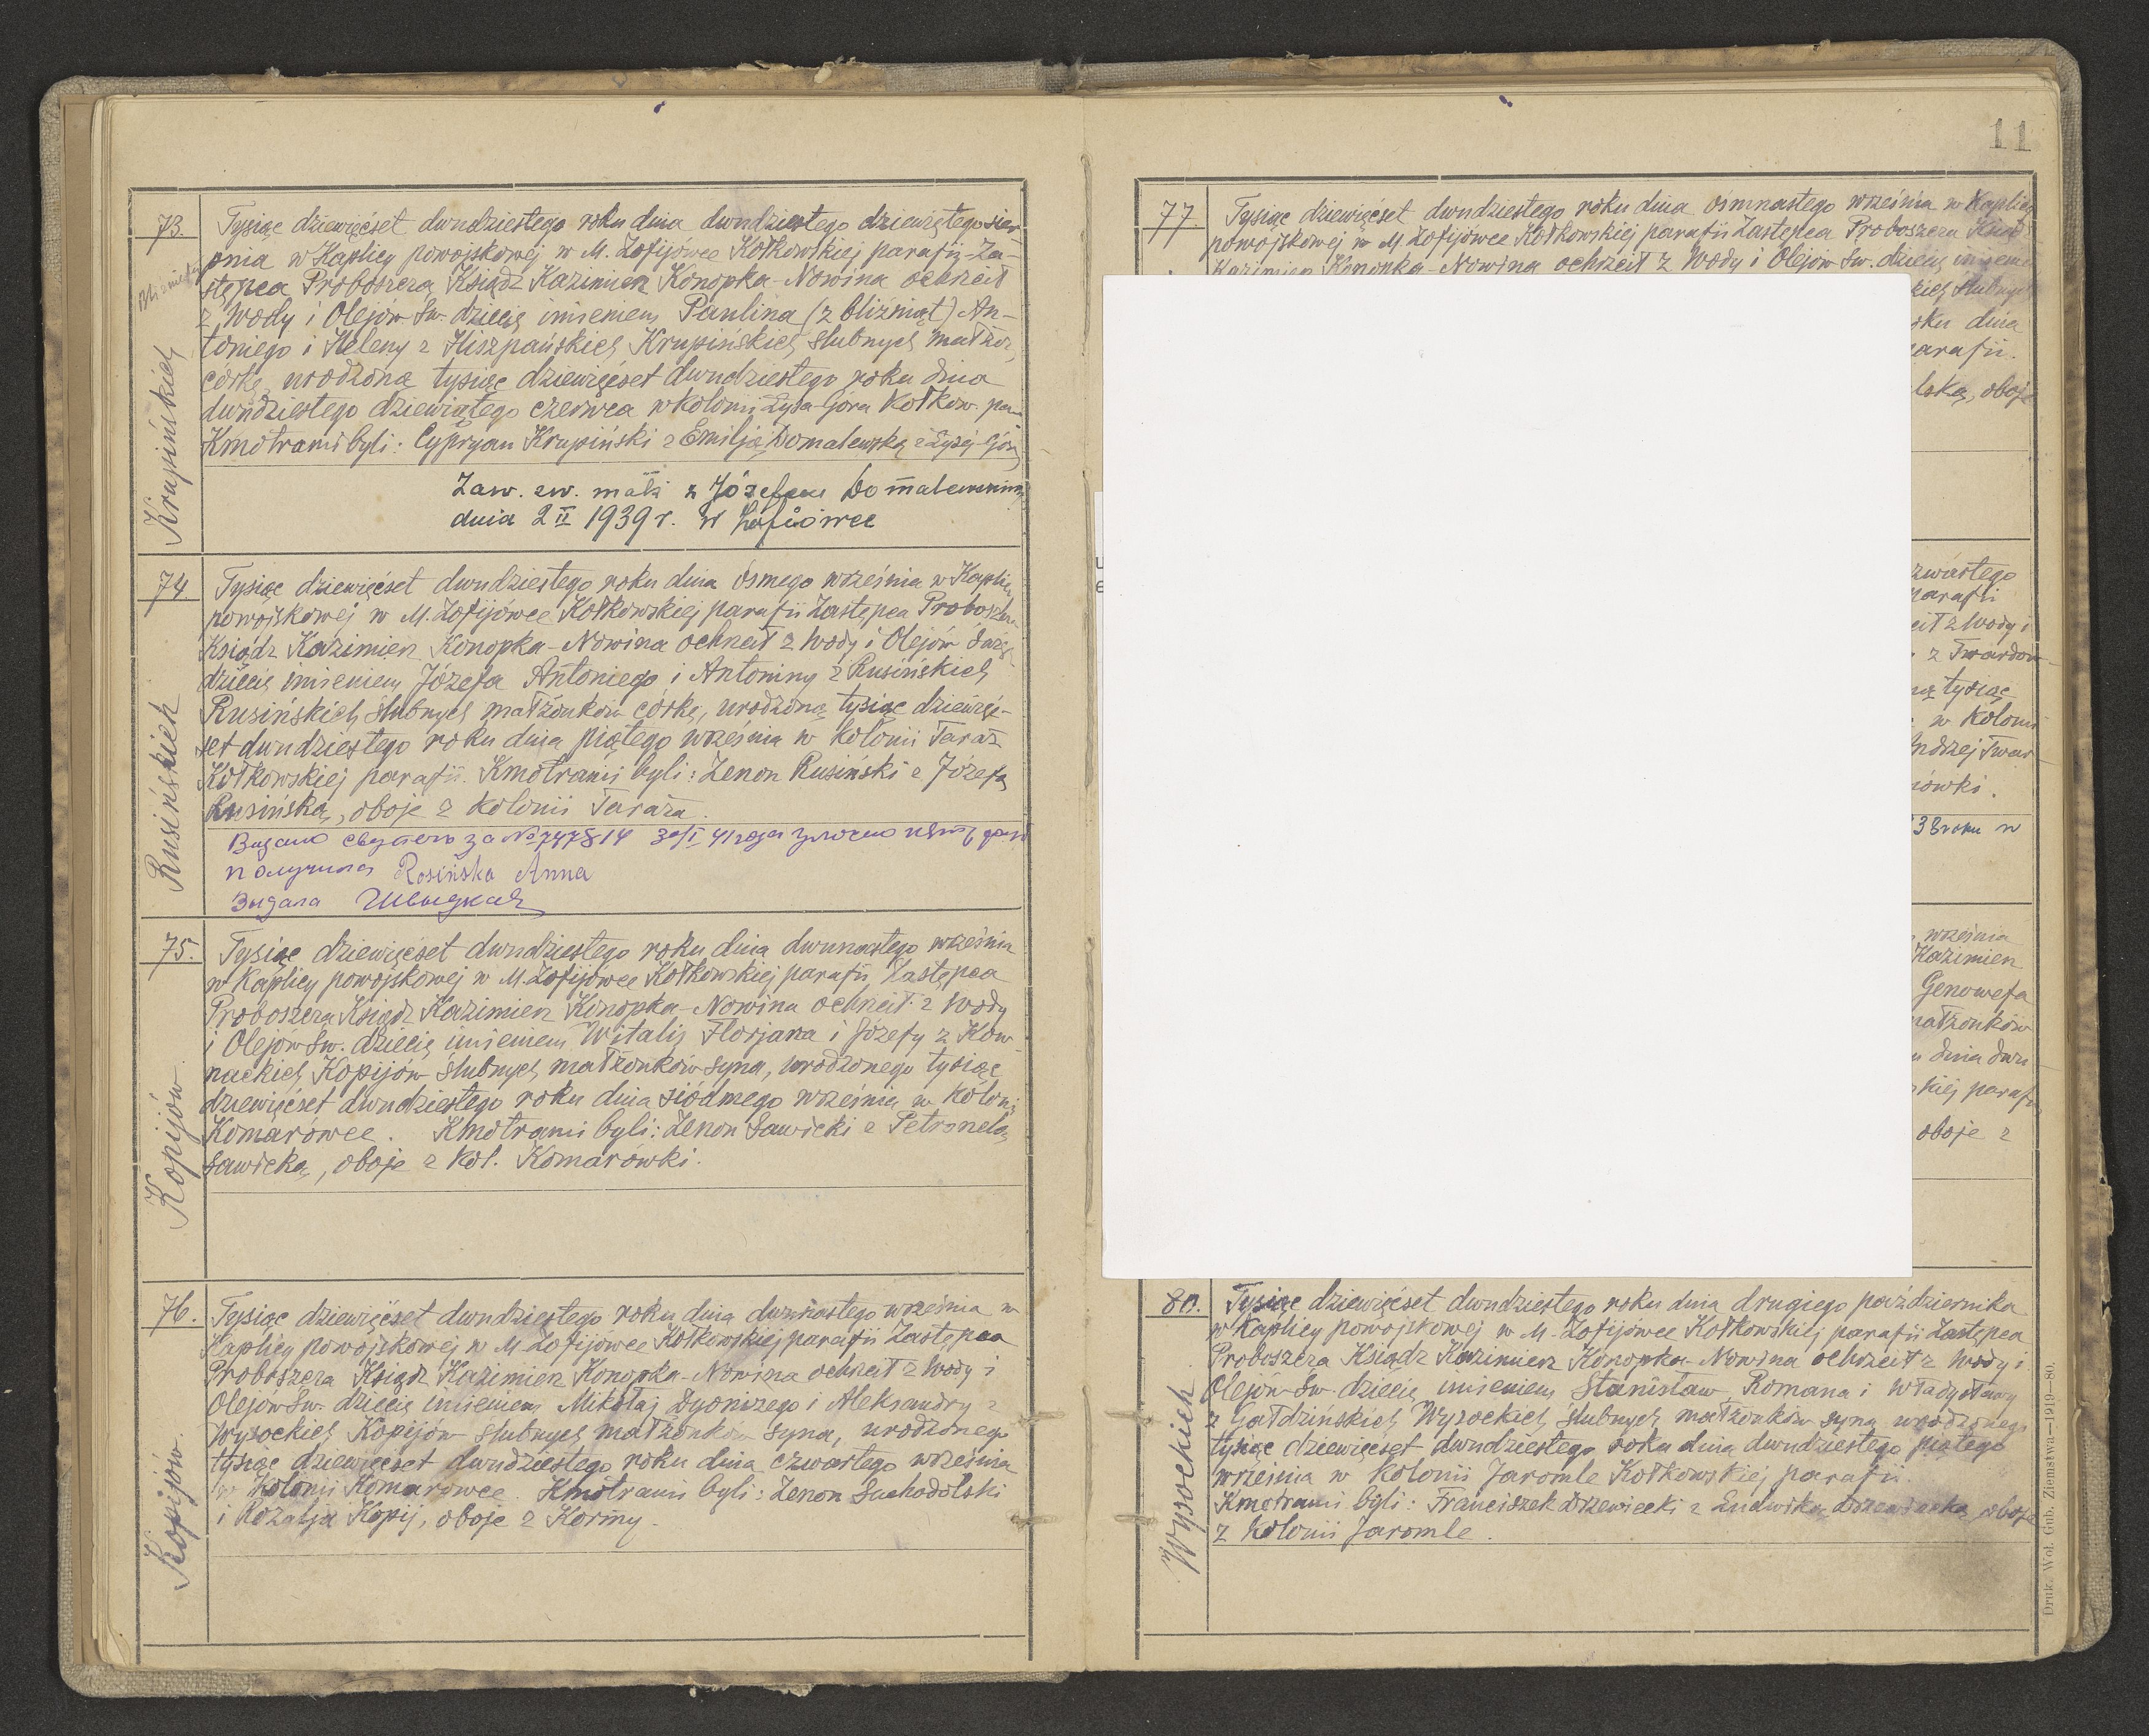 73.
Bliźnięta
Krupińskich
Tysiąc dziewięćset dwudziestego roku dnia dwudziestego dziewiątego sier-
pnia w Kaplicy powojskowej w M. Zofijówce Kołkowskiej parafii Za-
stępca Proboszcza Ksiądz Kazimierz Konopka-Nowina ochrzcił
z Wody i Olejów Św. dziecię imieniem Paulina (z bliźniąt) An-
toniego i Heleny z Hiszpańskich Krupińskich ślubnych małżon.
córkę, urodzoną tysiąc dziewięćset dwudziestego roku dnia
dwudziestego dziewiątego czerwca w kolonii Łysa-Góra Kołkow. pa-
Kmotrami byli: Cypryan Krupiński z Emilją Domalewską z Łysej-Góry
Zaw. zw. małż z Józefem Domalewskim
dnia 2 II 1939 r. w Zofiówce
74
Rusińskich
Tysiąc dziewięćset dwudziestego roku dnia ósmego września w Kaplicy
powojskowej w M. Zofijówce Kołkowskiej parafii Zastępca Proboszcza
Ksiądz Kazimierz Konopka-Nowina ochrzcił z Wody i Olejów
dziecię imieniem Józefa Antoniego i Antoniny z Rusińskich
Rusińskich ślubnych małżonków córkę, urodzoną tysiąc dziewięć-
set dwudziestego roku dnia piątego września w kolonii Taraż
Kołkowskiej parafii. Kmotrami byli: Zenon Rusiński z Józefą
Rusińską, oboje z kolonii Taraża.
Видано за № 747814 30/I 41 года
получила Rosińska Anna
Видала
75.
Kopijów
Tysiąc dziewięćset dwudziestego roku dnia dwunastego września
w Kaplicy powojskowej w M. Zofijówce Kołkowskiej parafii, Zastępca
Proboszcza Ksiądz Kazimierz Konopka-Nowina ochrzcił z Wody
i Olejów Św. dziecię imieniem Witalis Florjana i Józefy z Kow-
nackich Kopijów ślubnych małżonków syna, urodzonego tysiąc
dziewięćset dwudziestego roku dnia siódmego września w kolonii
Komarówce. Kmotrami byli: Zenon Sawicki z Petronelą
Sawicką, oboje z kol. Komarówki.
76.
Kopijów
Tysiąc dziewięćset dwudziestego roku dnia dwunastego września w
Kaplicy powojskowej w M. Zofijówce Kołkowskiej parafii Zastępca
Proboszcza Ksiądz Kazimierz Konopka-Nowina ochrzcił z Wody i
Olejów Św. dziecię imieniem Mikołaj Dyonizego i Aleksandry z
Wysockich Kopijów ślubnych małżonków syna, urodzonego
tysiąc dziewięćset dwudziestego roku dnia czwartego września
w Kolonii Komarówce. Kmotrami byli: Zenon Suchodolski
i Rozalja Kopij, oboje z Kormy.
11
77.
Tysiąc dziewięćset dwudziestego roku dnia ośmnastego września w Kaplicy
powojskowej w M. Zofijówce Kołkowskiej parafii Zastępca Proboszcza Ksiądz
Kazimierz Konopka-Nowina ochrzcił z Wody i Olejów Św. dziecię imieniem
kich ślubnych
oku dnia
arafii.
lską, oboje
zwartego
parafii
cił z Wody i
z Twardow-
ną tysiąc
w Kolonii
Andrzej Twar-
ówki.
38 roku w
września
Kazimierz
Genowefa
małżonków
dnia dwu-
skiej parafii
oboje z
80.
Wysockich
Tysiąc dziewięćset dwudziestego roku dnia drugiego października
w Kaplicy powojskowej w M. Zofijówce Kołkowskiej parafii Zastępca
Proboszcza Ksiądz Kazimierz Konopka-Nowina ochrzcił z Wody i
Olejów Św. dziecię imieniem Stanisław Romana i Władysławy
z Gałdzińskich Wysockich ślubnych małżonków syna urodzonego
tysiąc dziewięćset dwudziestego roku dnia dwudziestego piątego
września w kolonii Jaromle Kołkowskiej parafii.
Kmotrami byli: Franciszek Drzewiecki z Ludwiką Drzewiecką oboje
z kolonii Jaromle.
Druk. Woł. Gub. Ziemstwa—1919—80.